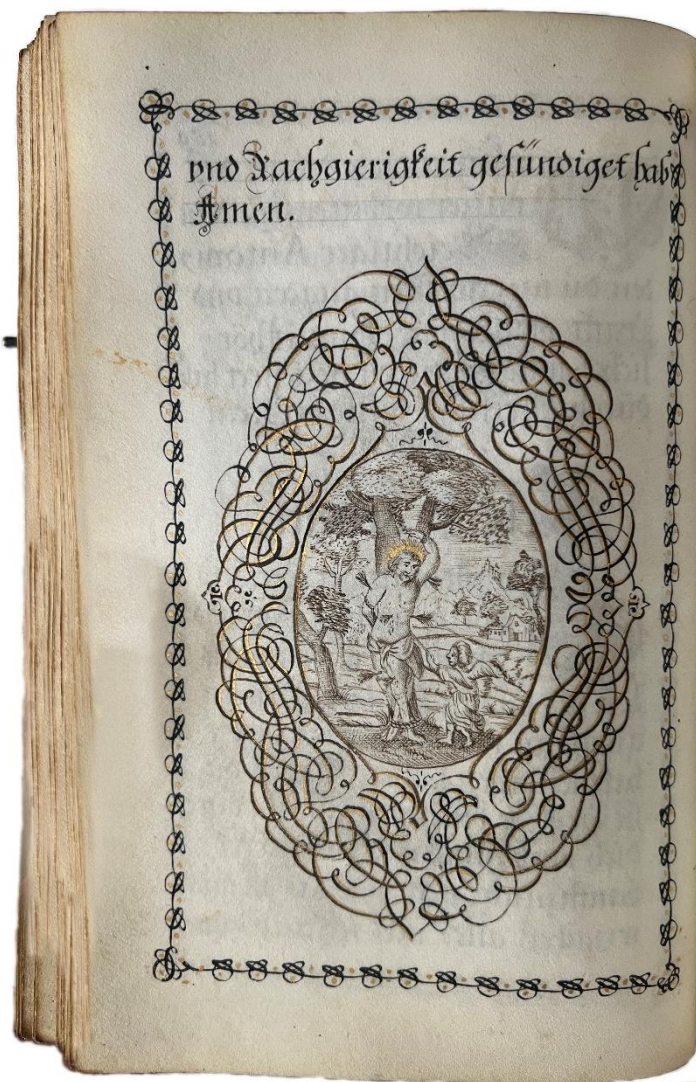 vnd Rachgierigkeit gesündiget hab
Amen.